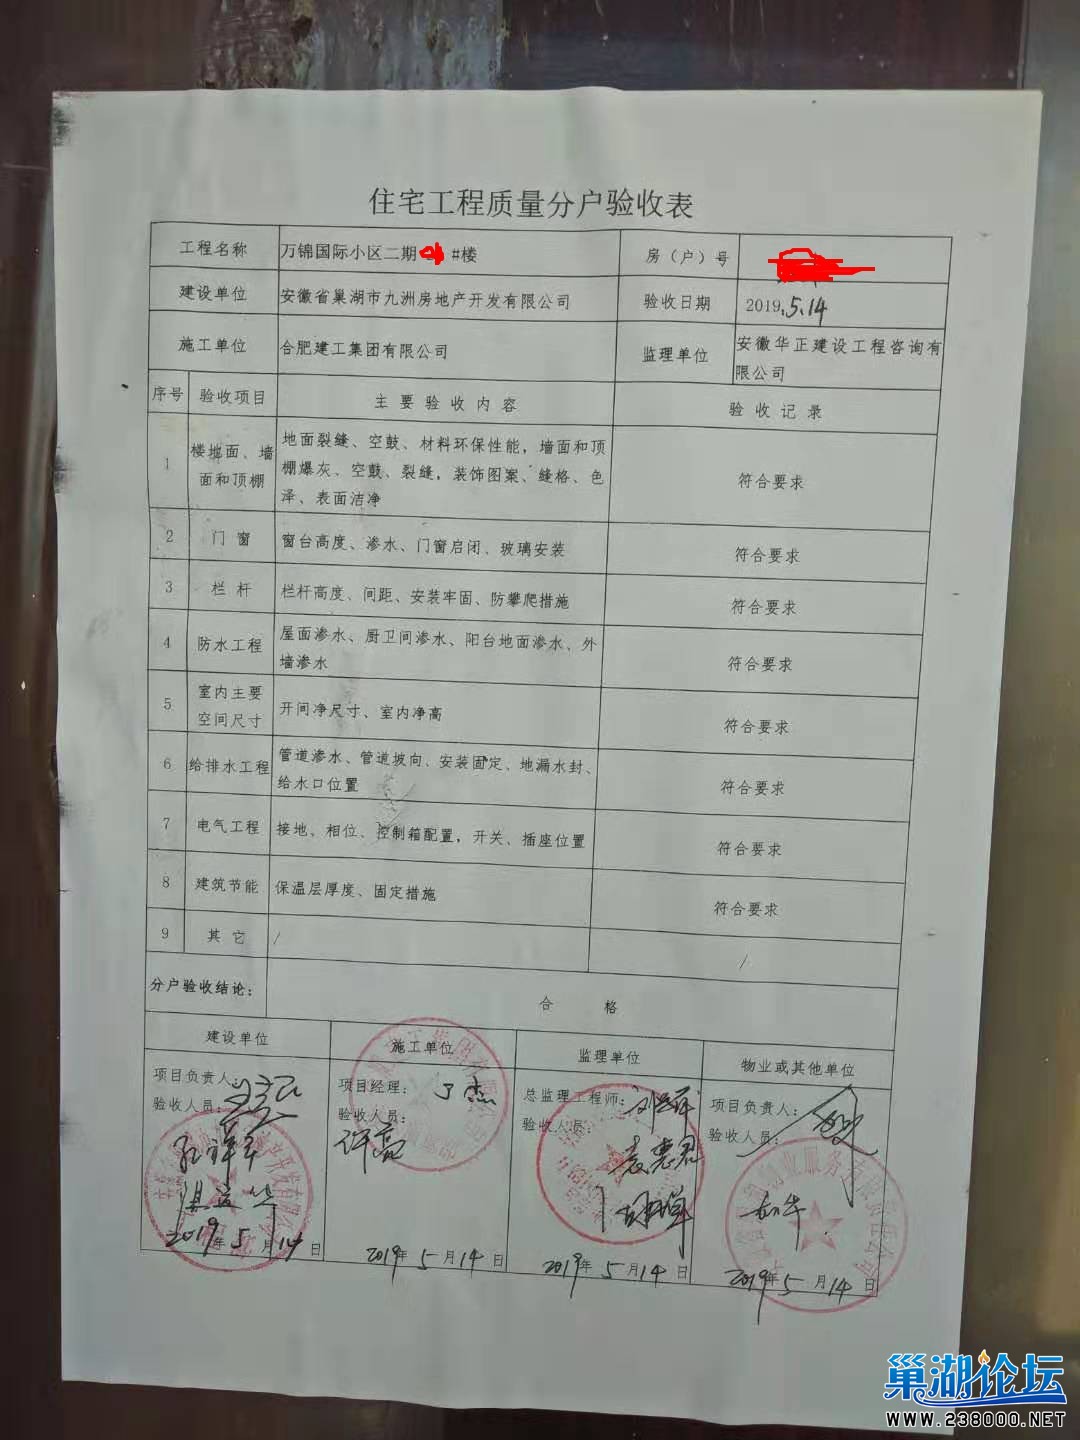 住宅工程质量分户验收表
工程名称 万锦国际小区二期 #楼 房（户）号
建设单位 安徽省巢湖市九洲房地产开发有限公司 验收日期 2019.5.14
施工单位 合肥建工集团有限公司 监理单位 安徽华正建设工程咨询有
限公司
序号 验收项目 主要验收内容 验收记录
1 楼地面、墙
面和顶棚 地面裂缝、空鼓、材料环保性能，墙面和顶
棚爆灰、空鼓、裂缝，装饰图案、缝格、色
泽、表面洁净 符合要求
2 门窗 窗台高度、渗水、门窗启闭、玻璃安装 符合要求
3 栏杆 栏杆高度、间距、安装牢固、防攀爬措施 符合要求
4 防水工程 屋面渗水、厨卫间渗水、阳台地面渗水、外
墙渗水 符合要求
5 室内主要
空间尺寸 开间净尺寸、室内净高 符合要求
6 给排水工程 管道渗水、管道坡向、安装固定、地漏水封、
给水口位置 符合要求
7 电气工程 接地、相位、控制箱配置，开关、插座位置 符合要求
8 建筑节能 保温层厚度、固定措施 符合要求
9 其它 / /
分户验收结论： 合 格
建设单位 施工单位 监理单位 物业或其他单位
项目负责人：
验收人员：
2019年5月14日
项目经理： 丁杰
验收人员：
许亮
2019年5月14日
总监理工程师：
验收人员：
2019年5月14日
项目负责人：
验收人员：
2019年5月14日
巢湖论坛
WWW.238000.NET